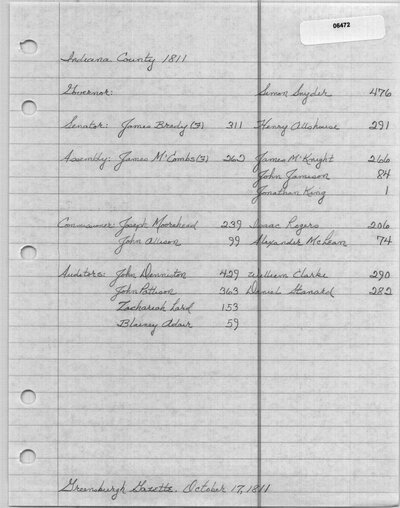 06472
Indiana County 1811
Governor: Simon Snyder 476
Senator: James Brady (3) 311 Henry Allshouse 291
Assembly: James McCombs (3) 262 James McKnight 266
John Jamison 84
Jonathan King 1
Commissioner: Joseph Moorehead 239 Isaac Rogers 206
John Allison 99 Alexander McLean 74
Auditors: John Denniston 429 William Clarke 290
John Pattison 363 Daniel Stanard 282
Zachariah Lord 153
Blainey Adair 59
Greensburgh Gazette. October 17, 1811